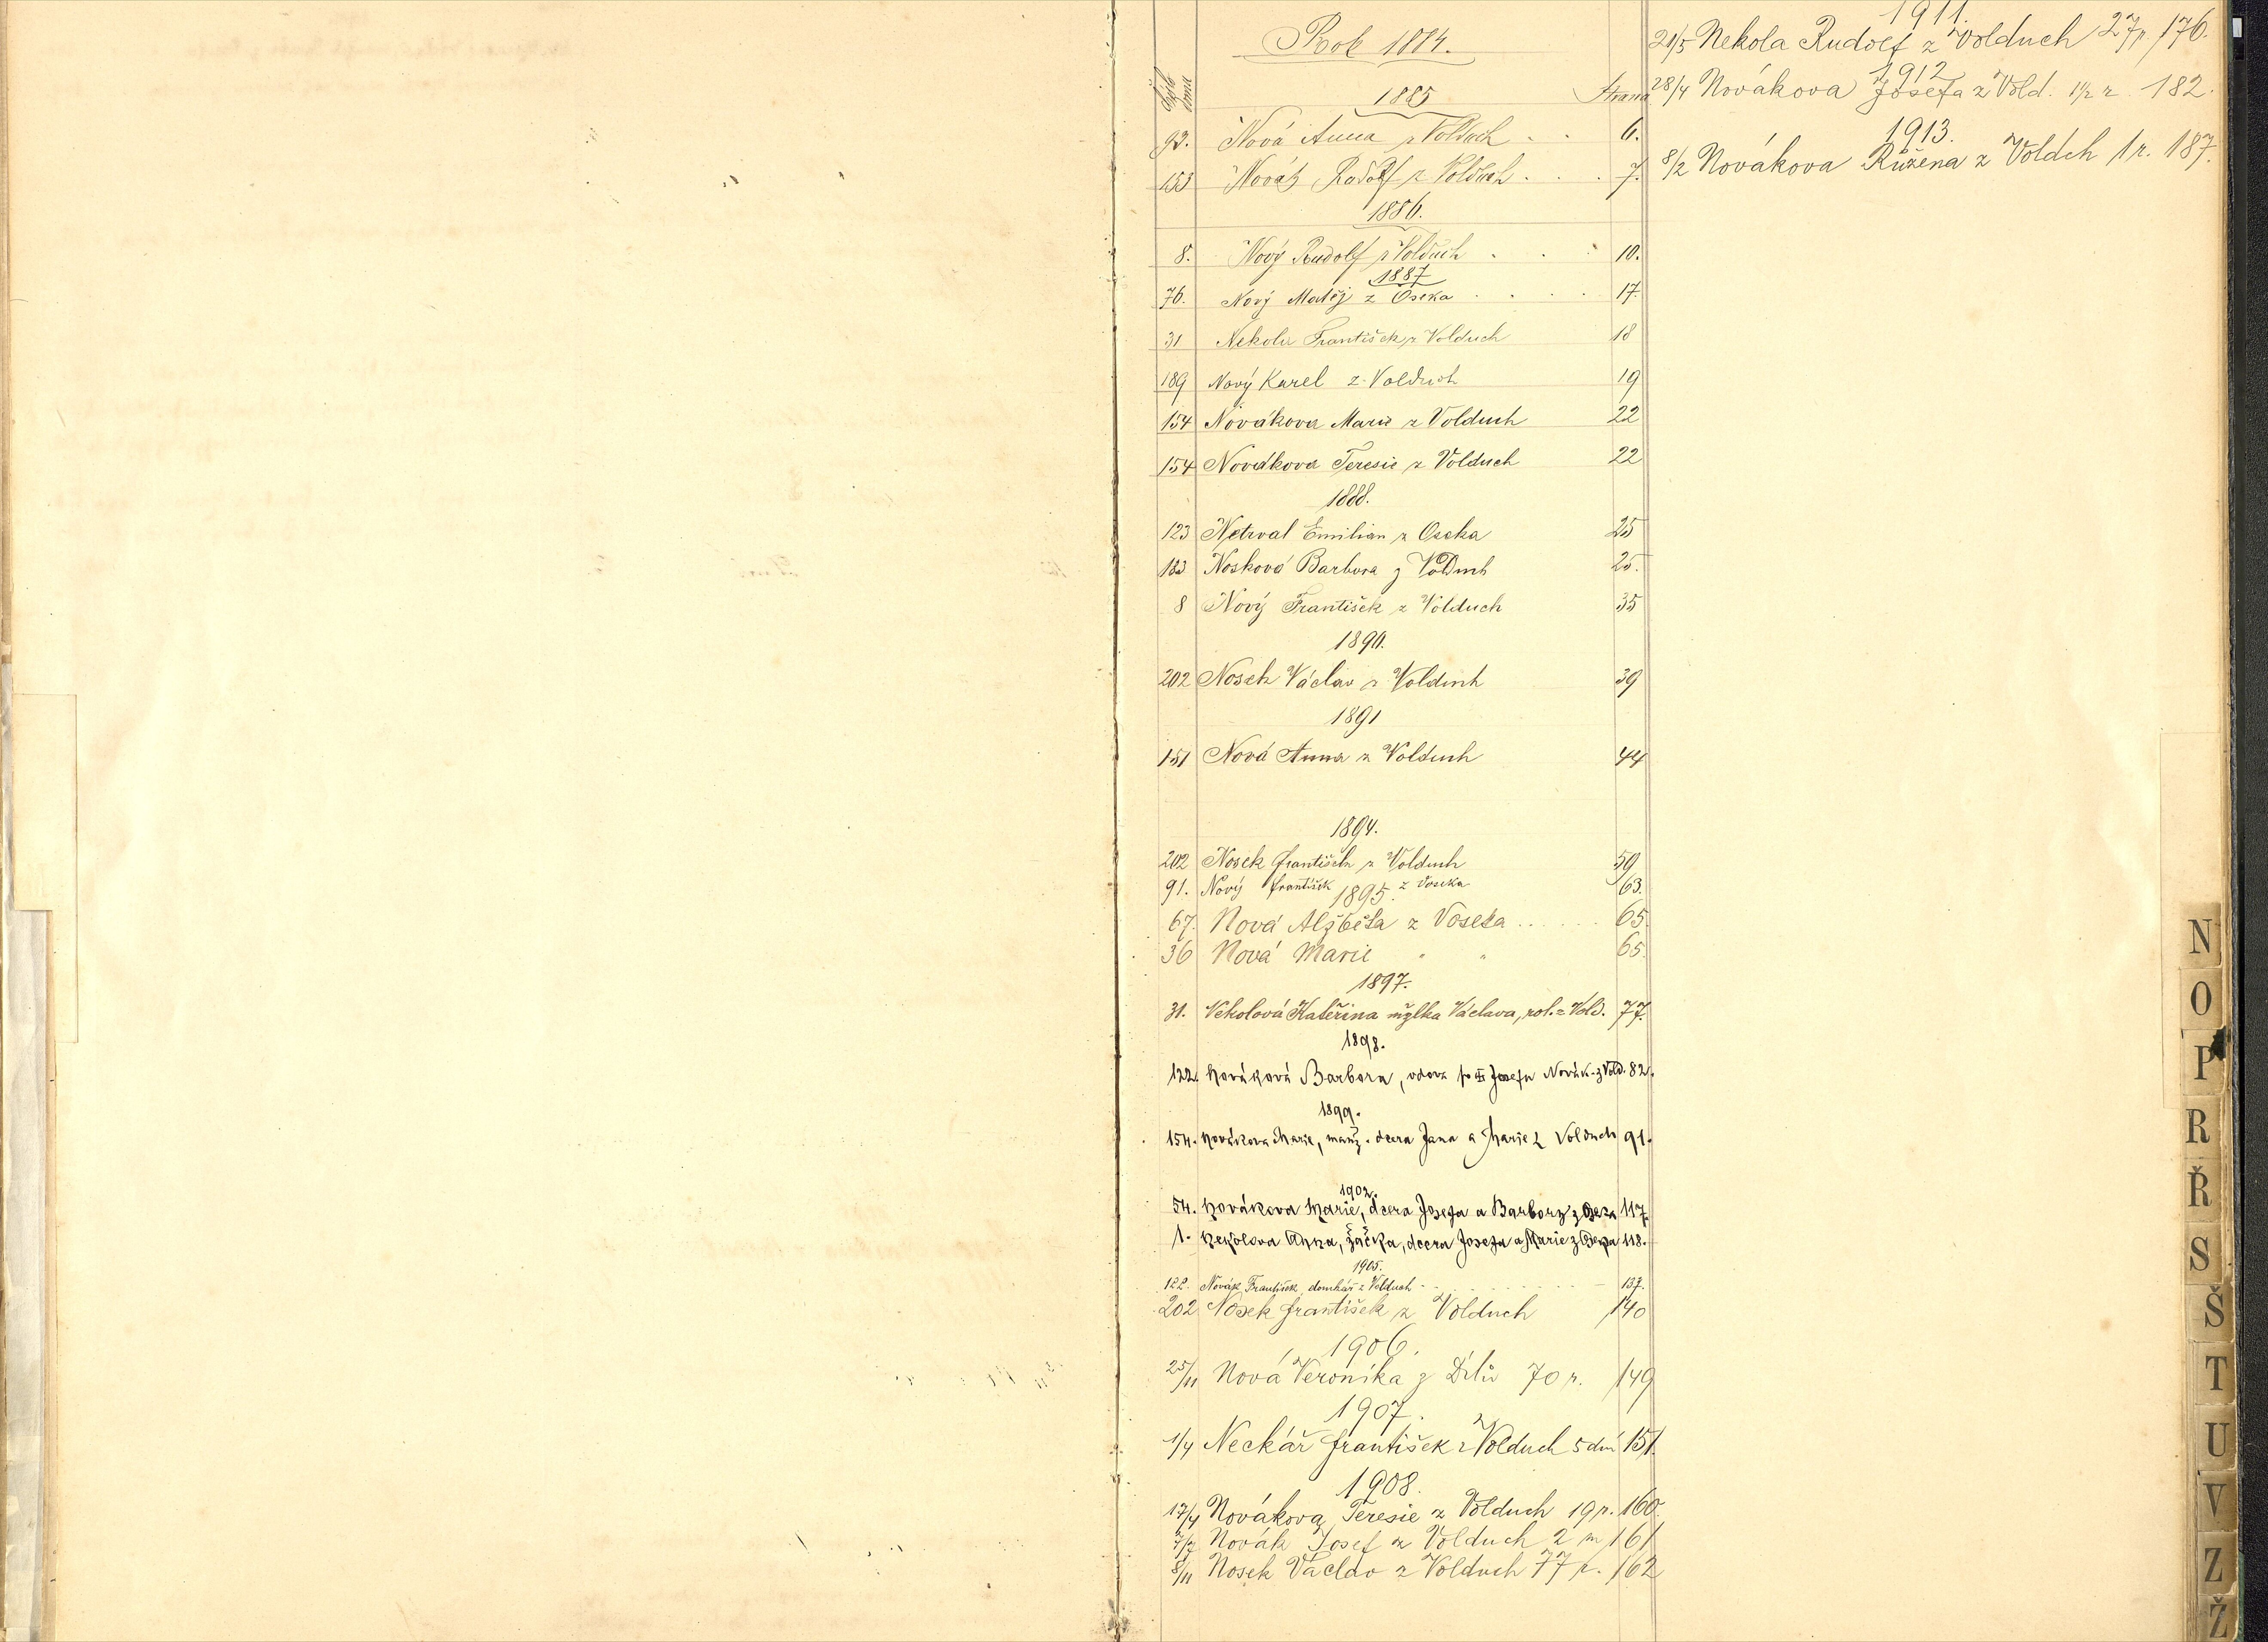 Rok 1884.
Číslo domu
1885 Strana
93. Nová Anna z Volduch . . 6.
153 Novák Rudolf z Volduch . . . 7.
1886.
8. Nový Rudolf z Volduch . . . 10.
1887
76. Nový Matěj z Oseka . . . . 17.
31 Nekola František z Volduch 18
189 Nový Karel z Volduch 19
154 Novákova Marie z Volduch 22
154 Novákova Teresie z Volduch 22
1888.
123 Netrval Emilian z Oseka 25
183 Nosková Barbora z Volduch 25.
8 Nový František z Volduch 35
1890.
202 Nosek Václav z Volduch 39
1891
151 Nová Anna z Volduch 44
1894.
202 Nosek František z Volduch 59
91. Nový František z Voseka 63.
1895.
67. Nová Alžběta z Voseka . . . . . . 65.
36 Nová Marie " " 65.
1897.
31. Nekolová Kateřina mžlka Václava, rol. z Vold. 77.
1898.
122. Nováková Barbora, vdova po Josefu Novák. z Vold. 82.
1899.
154. Novákova Marie, manž. dcera Jana a Marie z Volduch 91.
1902.
54. Novákova Marie, dcera Josefa a Barbory z Oseka 117.
1. Nekolova Anna, žačka, dcera Josefa a Marie z Oseka 118.
1905.
122. Novák František, domkář z Volduch 137.
202. Nosek František z Volduch 140
1906.
25/11 Nová Veronika z Dílů 70 r. 149
1907.
1/4 Neckář František z Volduch 5 dní 151.
1908.
17/4 Novákova Teresie z Volduch 19 r. 160.
7/7 Novák Josef z Volduch 2 m 161
8/11 Nosek Václav z Volduch 77 r. 162
1911.
21/5 Nekola Rudolf z Volduch 27 r. 176.
1912
28/4 Novákova Josefa z Vold. 1½ r. 182.
1913.
8/2 Novákova Růžena z Voldch 1 r. 187.
N
O
P
R
Ř
S
Š
T
U
V
Z
Ž